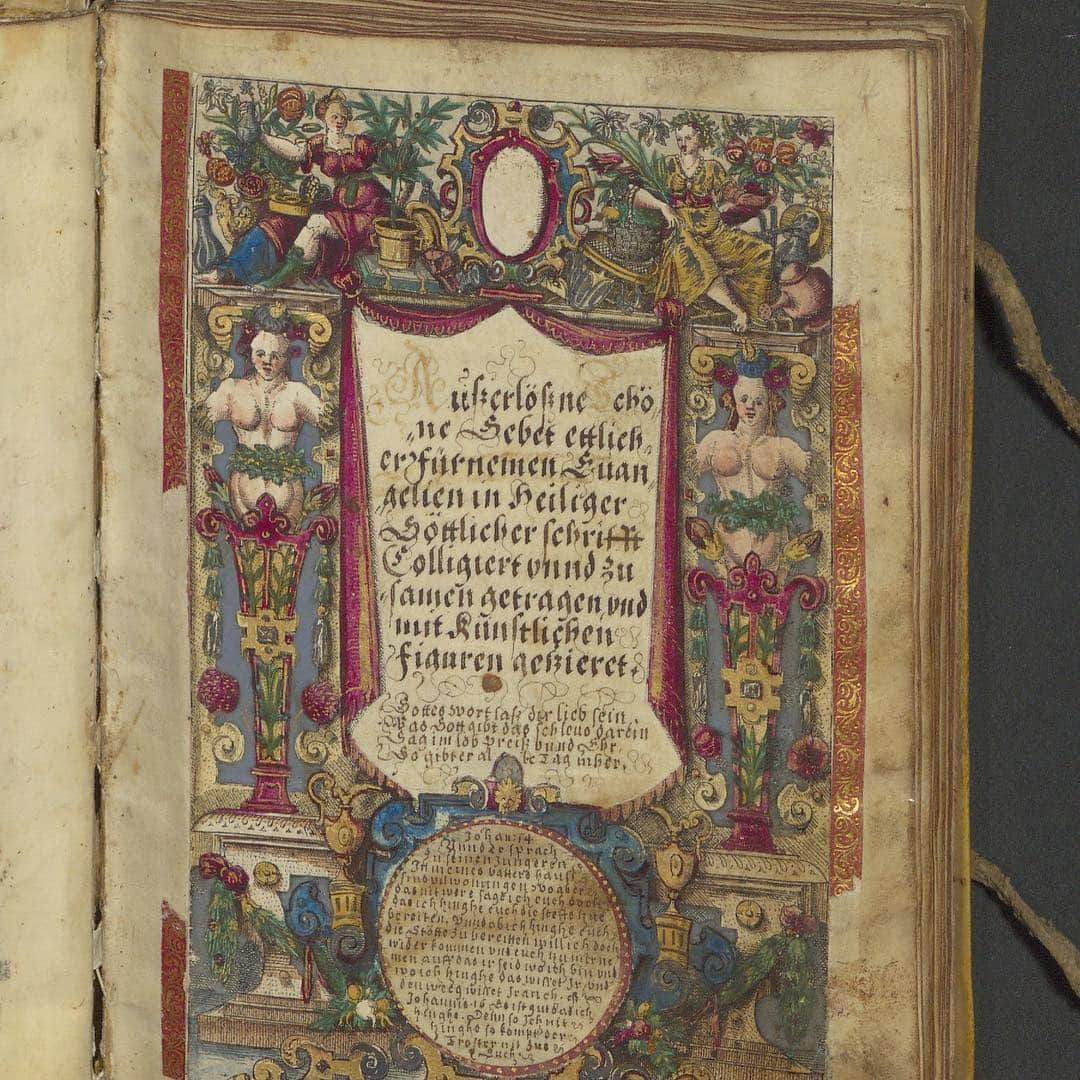 Außerlößne Schö
ne Gebet ettlich„
er Fürnemen Euan
gelien in Heiliger
Göttlicher schrifft
Colligiert vnnd zu
samen̄ getragen vnd
mit Künstlichen
Figuren geziehret.
Gottes wort laß dir lieb sein
Was Gott gibt das schleuß darein
Sag im lob Preiß vnnd Ehr,
So gibt er al le Tag mher.
Johan: 14
Vnnd er sprach
Zu seinen Jungeren
In meines vatters hauß
sind vil wonungen wo aber
das nit were sag ich euch doch
das ich hinghe euch die stette zue
bereiten, Vnnd ob ich hinghe euch
die Stötte zu bereitten will ich doch
wider kommen vnd euch zu mir ne
men auff das ir seid wo ich bin vnd
wo ich hinghe das wisset Ir, vnd
den weeg wisset Ir auch.
Johannis 16 Es ist gut das ich
hinghe. Denn so Ich nit
hinghe so kompt der
Tröster nit zue
Euch